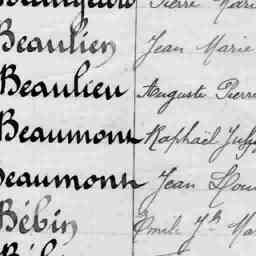 Pierre Marie
Beaulieu Jean Marie
Beaulieu Auguste Pierre
Beaumont Raphaël
Beaumont Jean
Bébin Emile Jh